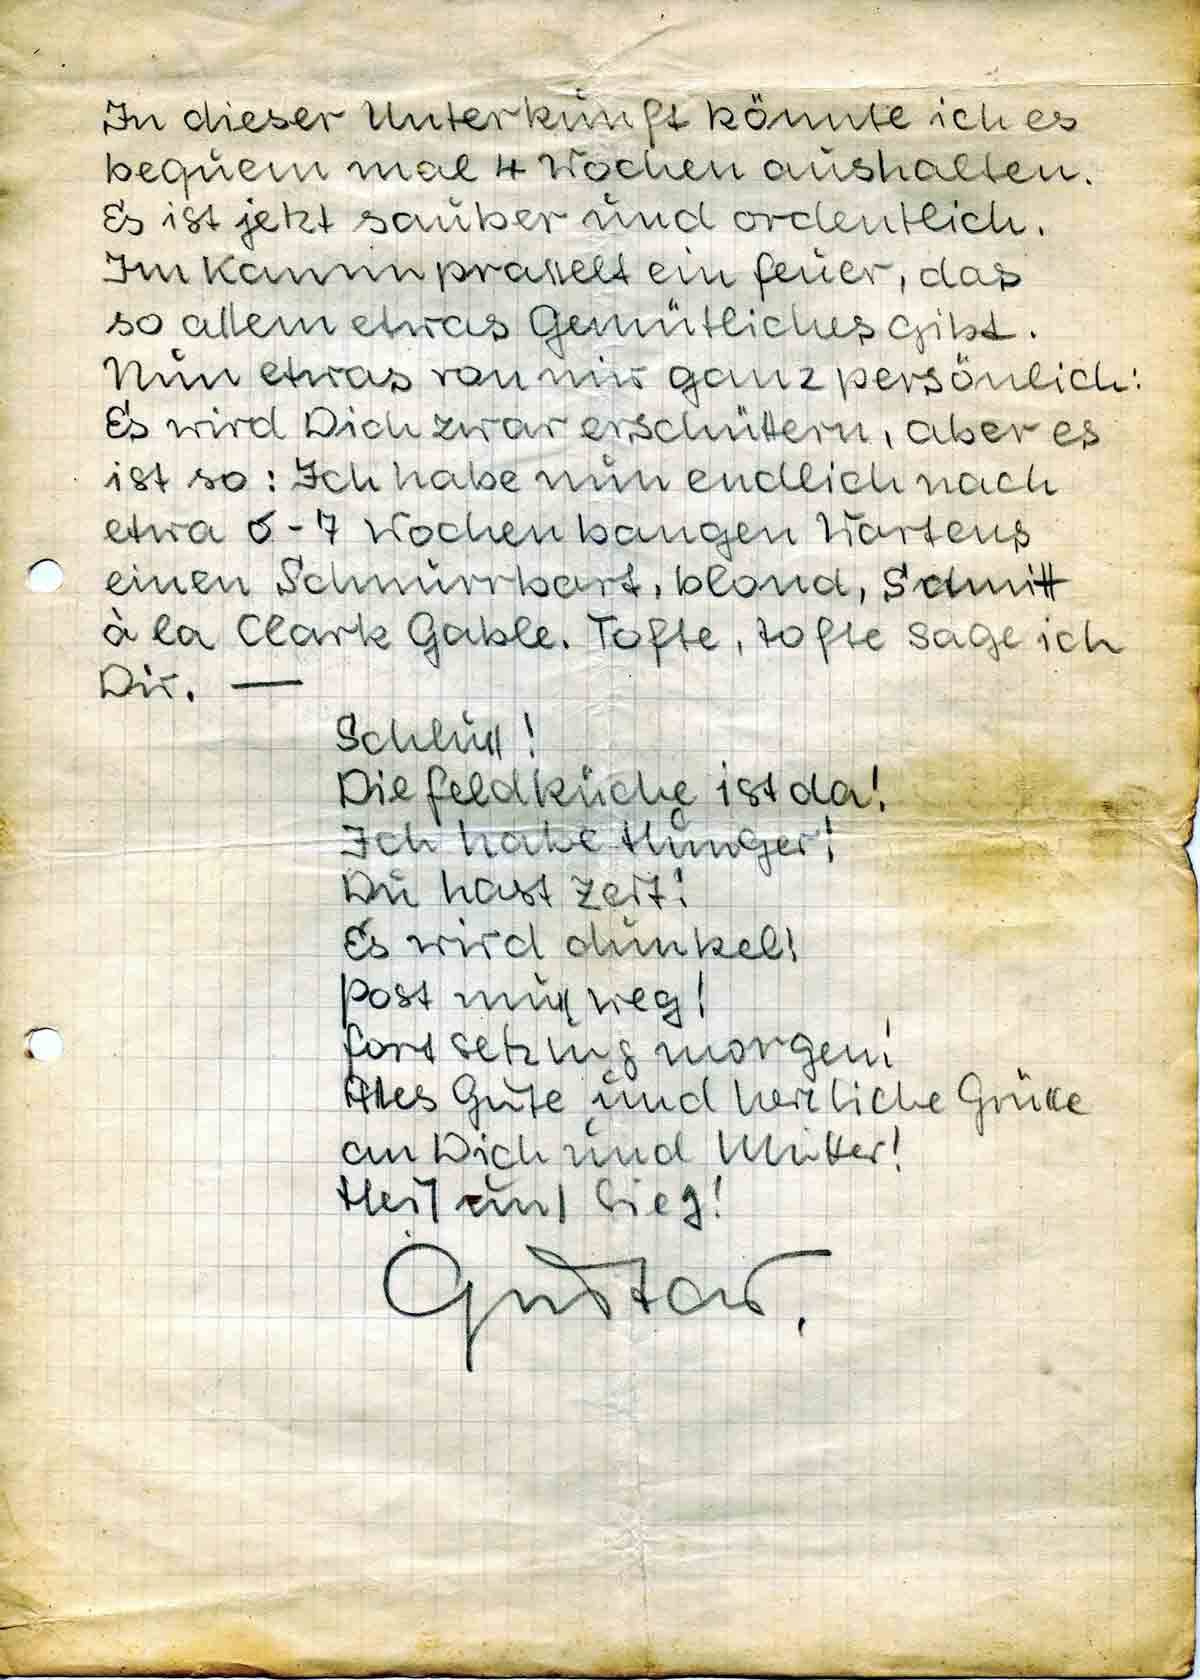 In dieser Unterkunft könnte ich es
bequem mal 4 Wochen aushalten.
Es ist jetzt sauber und ordentlich.
Im Kamin prasselt ein Feuer, das
so allem etwas Gemütliches gibt.
Nun etwas von mir ganz persönlich:
Es wird Dich zwar erschüttern, aber es
ist so: Ich habe nun endlich nach
etwa 6-7 Wochen bangen Wartens
einen Schnurrbart, blond, Schnitt
à la Clark Gable. Tofte, tofte sage ich
Dir. —
Schluß!
Die Feldküche ist da!
Ich habe Hunger!
Du hast Zeit!
Es wird dunkel!
Post muß weg!
Fortsetzung morgen!
Alles Gute und herzliche Grüße
an Dich und Mutter!
Heil und Sieg!
Gustav.